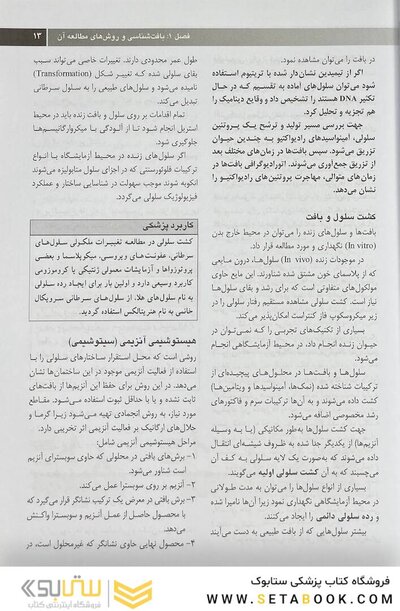 فصل ۱: بافت‌شناسی و روش‌های مطالعه آن ۱۳
در بافت را می‌توان مشاهده نمود.
اگر از تیمیدین نشان‌دار شده با تریتیوم استفاده
شود می‌توان سلول‌های آماده به تقسیم که در حال
تکثیر DNA هستند را تشخیص داد و وقایع دینامیک را
هم تجزیه و تحلیل کرد.
جهت بررسی مسیر تولید و ترشح یک پروتئین
سلولی، آمینواسیدهای رادیواکتیو به چندین حیوان
تزریق می‌شود. سپس بافت‌ها در زمان‌های مختلف بعد
از تزریق جمع‌آوری می‌شوند. اتورادیوگرافی بافت‌ها در
زمان‌های متوالی، مهاجرت پروتئین‌های رادیواکتیو را
نشان می‌دهد.
کشت سلول و بافت
بافت‌ها و سلول‌های زنده را می‌توان در محیط خارج بدن
(In vitro) نگهداری و مورد مطالعه قرار داد.
در موجودات زنده (In vivo) سلول‌ها، درون مایعی
که از پلاسمای خون مشتق شده شناورند. این مایع حاوی
مولکول‌های متفاوتی است که برای رشد و بقای سلول‌ها
نیاز است. کشت سلولی مشاهده مستقیم رفتار سلولی را در
زیر میکروسکوپ فاز کنتراست امکان‌پذیر می‌کند.
بسیاری از تکنیک‌های تجربی را که نمی‌توان در
حیوان زنده انجام داد، در محیط آزمایشگاهی انجام
می‌دهند.
سلول‌ها و بافت‌ها در محلول‌های پیچیده‌ای از
ترکیبات شناخته شده (نمک‌ها، آمینواسیدها و ویتامین‌ها)
کشت داده می‌شوند و به آن‌ها ترکیبات سرم و فاکتورهای
رشد مخصوصی اضافه می‌شود.
جهت کشت سلول‌ها به‌طور مکانیکی (یا به وسیله
آنزیم‌ها) از یکدیگر جدا شده به ظروف شیشه‌ای انتقال
داده می‌شوند که به‌صورت یک لایه سلولی به کف آن
می‌چسبند که به آن کشت سلولی اولیه می‌گویند.
بسیاری از انواع سلول‌ها را می‌توان به مدت طولانی
در محیط آزمایشگاهی نگهداری نمود زیرا آن‌ها نامیرا شده
و رده سلولی دائمی را ایجاد می‌کنند.
بیشتر سلول‌هایی که از بافت طبیعی به دست می‌آیند
طول عمر محدودی دارند. تغییرات خاصی می‌تواند سبب
بقای سلولی شده که تغییر شکل (Transformation)
نامیده می‌شود و سلول‌های طبیعی را به سلول سرطانی
تبدیل می‌کند.
تمام اقدامات بر روی سلول و بافت زنده باید در محیط
استریل انجام شود تا از آلودگی با میکروارگانیسم‌ها
جلوگیری شود.
اگر سلول‌های زنده در محیط آزمایشگاه با انواع
ترکیبات فلوئورسنتی که در اجزای سلول متابولیزه می‌شوند
انکوبه شوند موجب سهولت در شناسایی ساختار و عملکرد
فیزیولوژیک سلولی می‌گردد.
کاربرد پزشکی
کشت سلولی در مطالعه تغییرات ملکولی سلول‌های
سرطانی، عفونت‌های ویروسی، میکوپلاسما و بعضی
پروتوزوآها و آزمایشات معمولی ژنتیکی یا کروموزومی
کاربرد وسیعی دارد و اولین بار برای ایجاد رده سلولی
به نام سلول‌های هلا، از سلول‌های سرطانی سرویکال
خانمی به نام هنریتالکس استفاده گردید.
هیستوشیمی آنزیمی (سیتوشیمی)
روشی است که محل استقرار ساختارهای سلولی را با
استفاده از فعالیت آنزیمی موجود در این ساختمان‌ها نشان
می‌دهد. در این روش برای حفظ این آنزیم‌ها از بافت‌های
ثابت نشده و یا با حداقل ثبوت استفاده می‌شود. مقاطع
مورد نیاز، به روش انجمادی تهیه می‌شود زیرا گرما و
حلال‌های ارگانیک بر فعالیت آنزیمی اثر تخریبی دارد.
مراحل هیستوشیمی آنزیمی شامل:
۱– برش‌های بافتی در محلولی که حاوی سوبسترای آنزیم
است شناور می‌شود.
۲– آنزیم بر روی سوبسترا عمل می‌کند.
۳– برش بافتی در معرض یک ترکیب نشانگر قرار می‌گیرد که
با محصول حاصل از عمل آنزیم و سوبسترا واکنش
می‌دهد.
۴– محصول نهایی حاوی نشانگر که غیرمحلول است، در
فروشگاه کتاب پزشکی ستابوک
WWW.SETABOOK.COM
ستابوک
فروشگاه اینترنتی کتاب